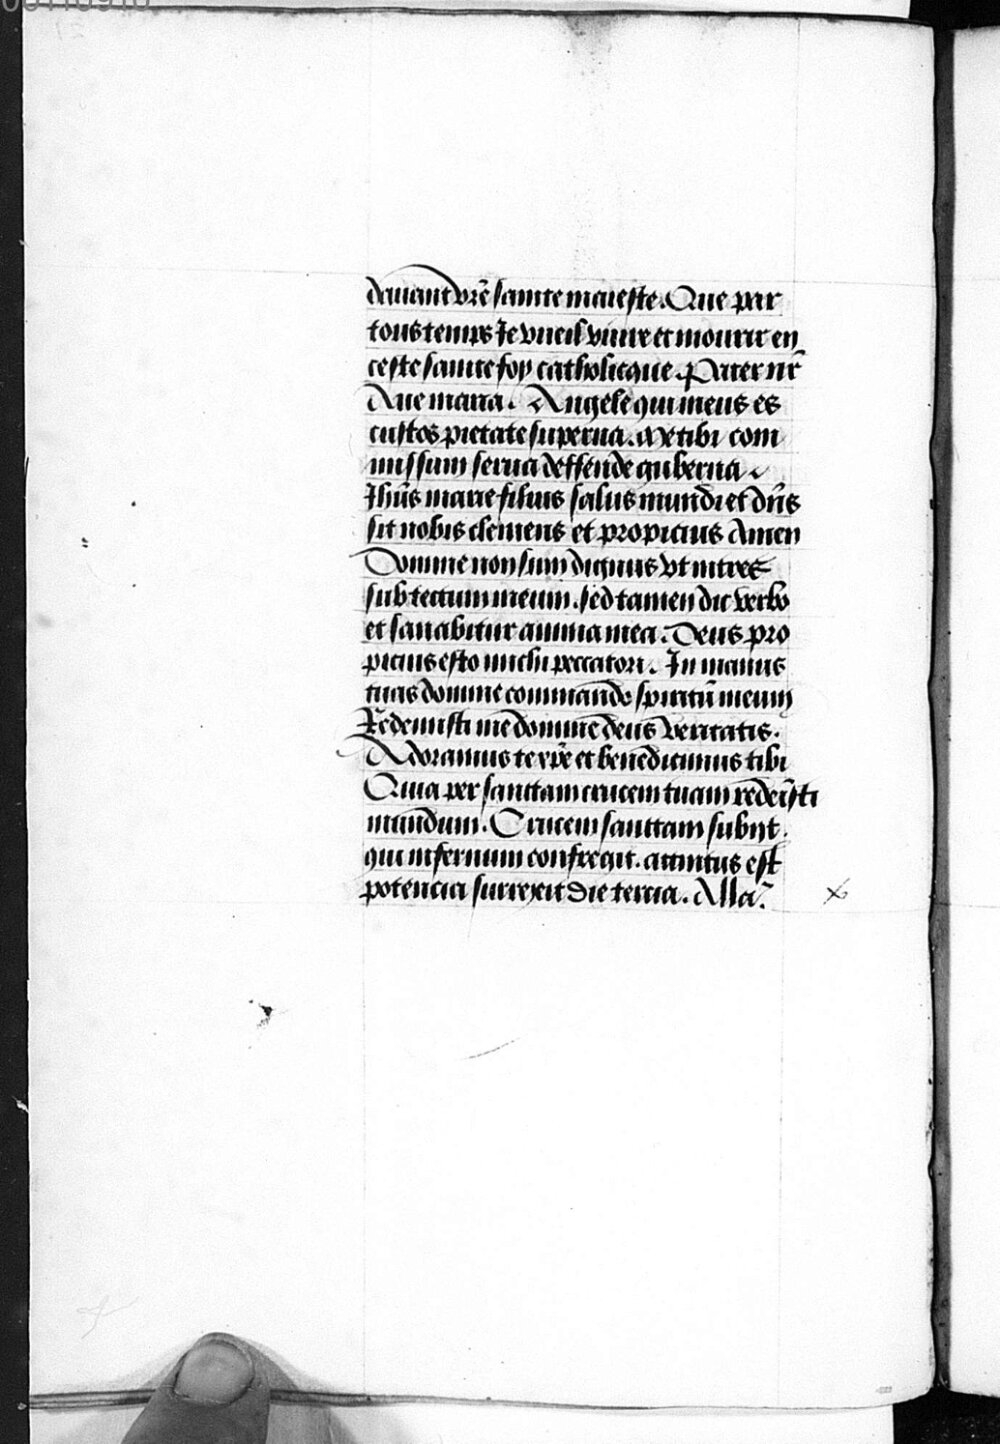 deuant vr̄e saincte maieste. Que par
tous temps Je vueil viure et mourir en
ceste saincte foy catholicque. Pater nr̄
Aue maria. Angele qui meus es
custos pietate superna. Me tibi com
missum serua deffende guberna
Jhūs marie filius salus mundi et dn̄s
sit nobis clemens et propicius Amen
Domine non sum dignus vt intres
sub tectum meum. sed tamen dic verbo
et sanabitur anima mea. Deus pro
picius esto michi peccatori. In manus
tuas domine commando spiritū meum
Redemisti me domine deus veritatis.
Adoramus te xp̄e et benedicimus tibi
Quia per sanctam crucem tuam redemisti
mundum. Crucem sanctam subiit.
qui infernum confregit. accintus est
potencia surrexit die tercia. Alla.